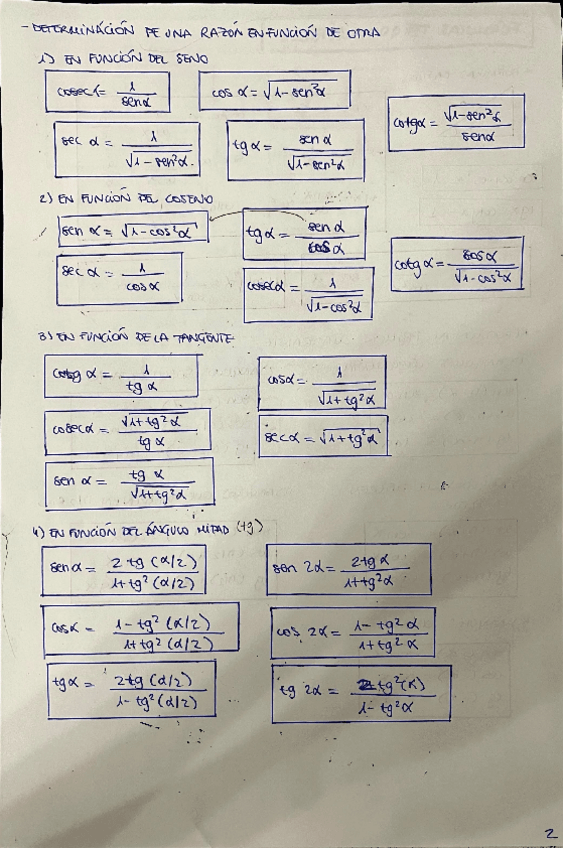 - DETERMINACIÓN DE UNA RAZÓN EN FUNCIÓN DE OTRA
1) EN FUNCIÓN DEL SENO
cosec α = 1 / sen α
cos α = √(1 - sen²α)
cotg α = √(1 - sen²α) / sen α
sec α = 1 / √(1 - sen²α)
tg α = sen α / √(1 - sen²α)
2) EN FUNCIÓN DEL COSENO
sen α = √(1 - cos²α)
tg α = sen α / cos α
cotg α = cos α / √(1 - cos²α)
sec α = 1 / cos α
cosec α = 1 / √(1 - cos²α)
3) EN FUNCIÓN DE LA TANGENTE
cotg α = 1 / tg α
cos α = 1 / √(1 + tg²α)
cosec α = √(1 + tg²α) / tg α
sec α = √(1 + tg²α)
sen α = tg α / √(1 + tg²α)
4) EN FUNCIÓN DEL ÁNGULO MITAD (tg)
sen α = 2 tg (α/2) / 1 + tg² (α/2)
sen 2α = 2 tg α / 1 + tg²α
cos α = 1 - tg² (α/2) / 1 + tg² (α/2)
cos 2α = 1 - tg²α / 1 + tg²α
tg α = 2 tg (α/2) / 1 - tg² (α/2)
tg 2α = 2 tg² (α) / 1 - tg²α
2